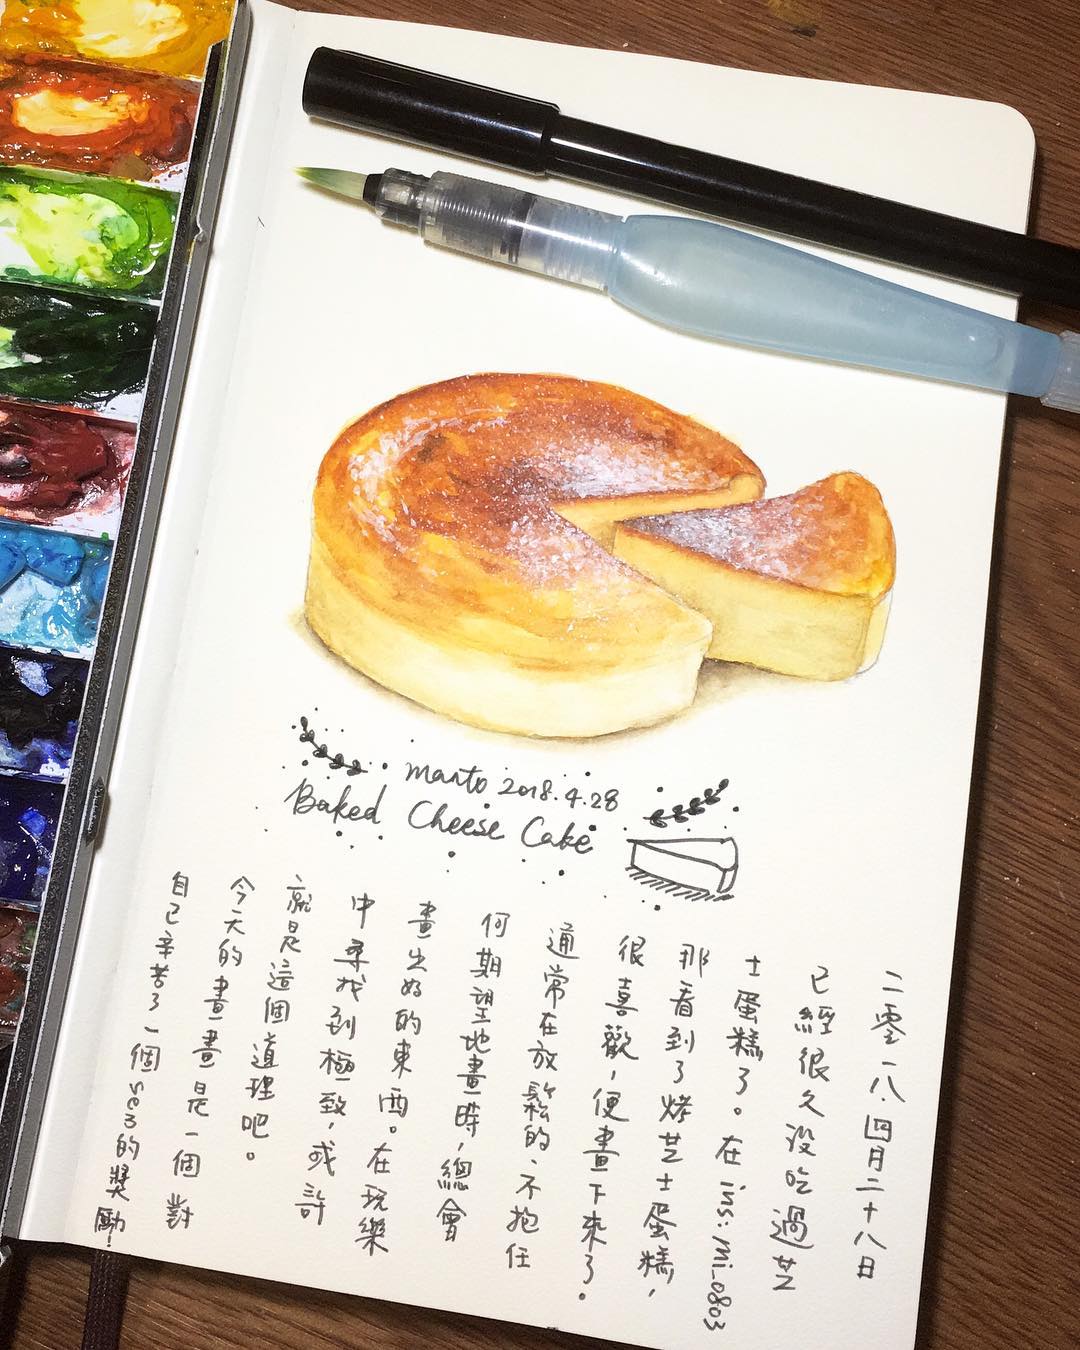 manto 2018.4.28
Baked Cheese Cake
二零一八.四月二十八日
已經很久沒吃過芝
士蛋糕了。在ins:mi_0803
那看到了烤芝士蛋糕,
很喜歡,便畫下來了.
通常在放鬆的、不抱任
何期望地畫時,總會
畫出好的東西。在玩樂
中尋找到極致,或許
就是這個道理吧。
今天的畫畫是一個對
自己辛苦了一個sem的獎勵!